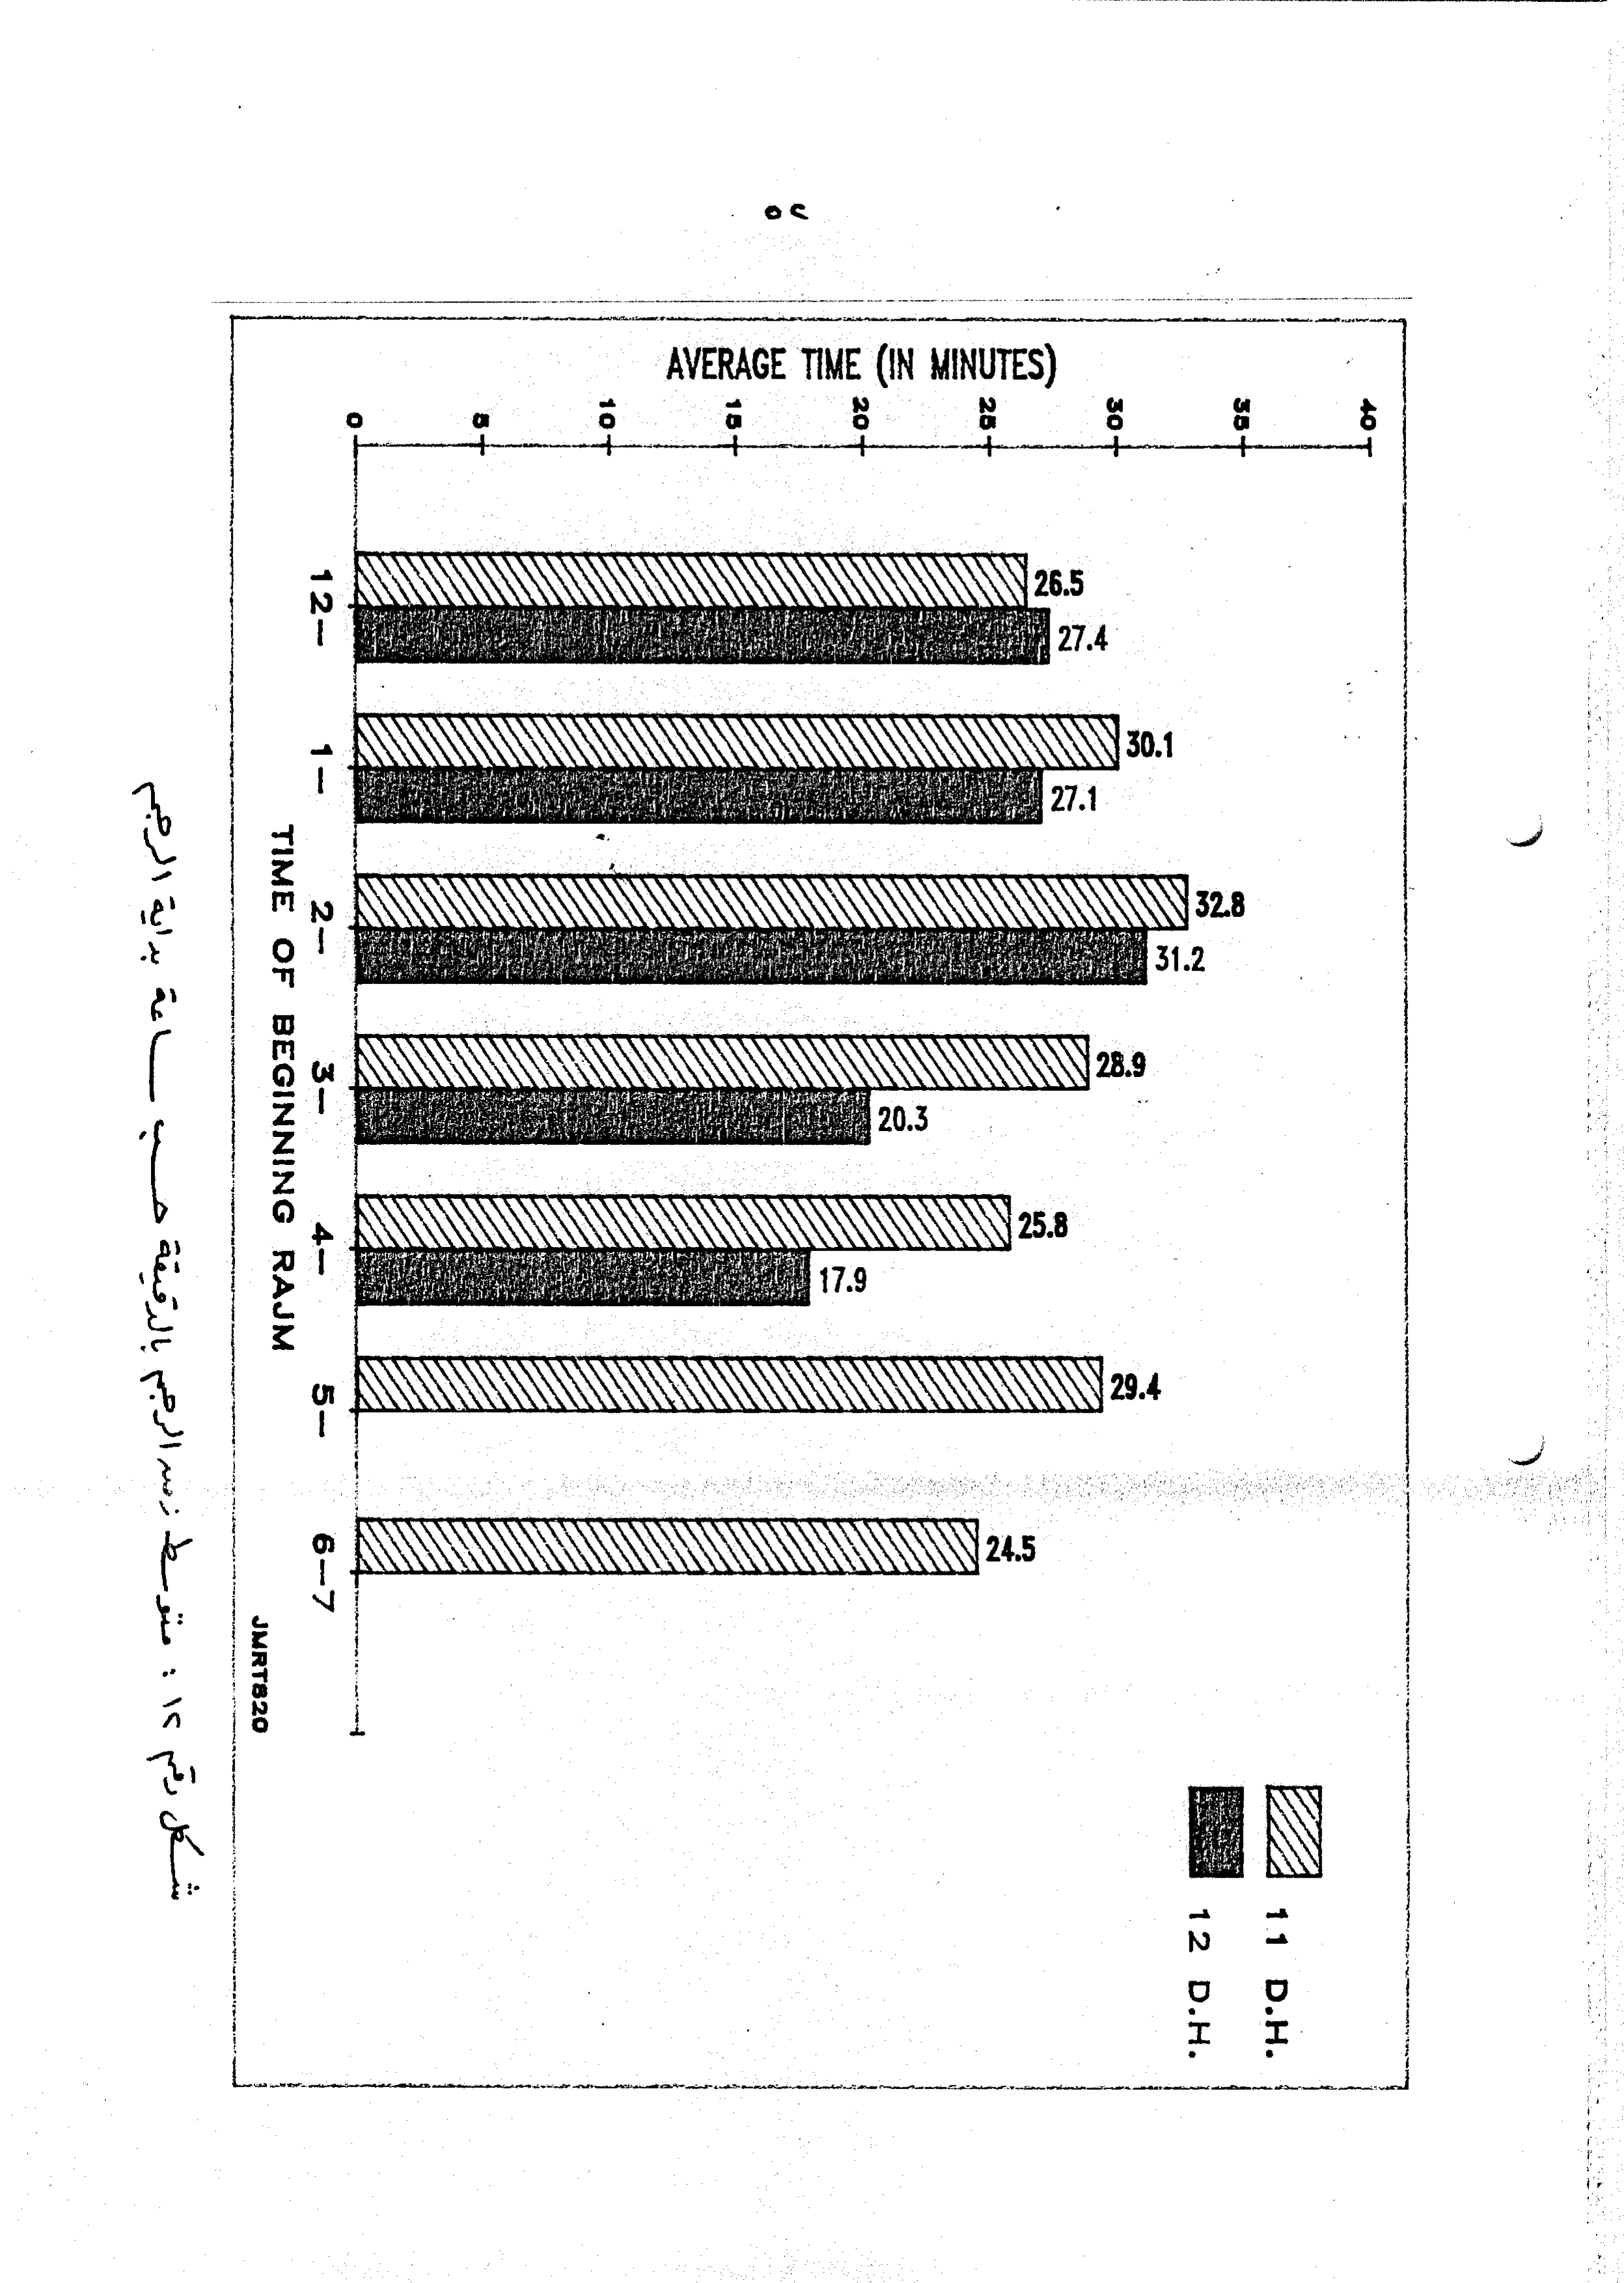 ٥٢
AVERAGE TIME (IN MINUTES)
40
35
30
25
20
15
10
5
0
26.5
27.4
30.1
27.1
32.8
31.2
28.9
20.3
25.8
17.9
29.4
24.5
12–
1–
2–
3–
4–
5–
6–7
TIME OF BEGINNING RAJM
JMRT820
11 D.H.
12 D.H.
شكل رقم ١٢ : متوسط زمن الرجم بالدقيقة حسب ساعة بداية الرجم